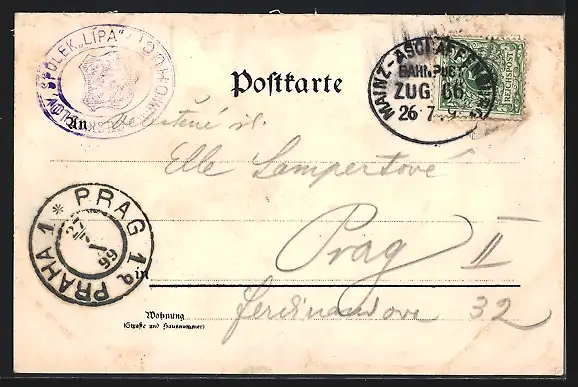 SPOLEK „LÍPA"
Postkarte
MAINZ-ASCHAFFENBURG
BAHNPOST
ZUG 66
26 7
REICHSPOST
An
sl.
Elle Lampertové
Prag II
in
PRAG 1
PRAHA 1
Wohnung
(Straße und Hausnummer)
Ferdinandova 32